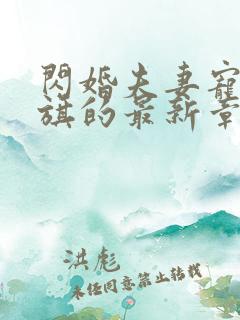 閃婚夫妻寵
旗的最新章
洪彪
未经同意禁止转载